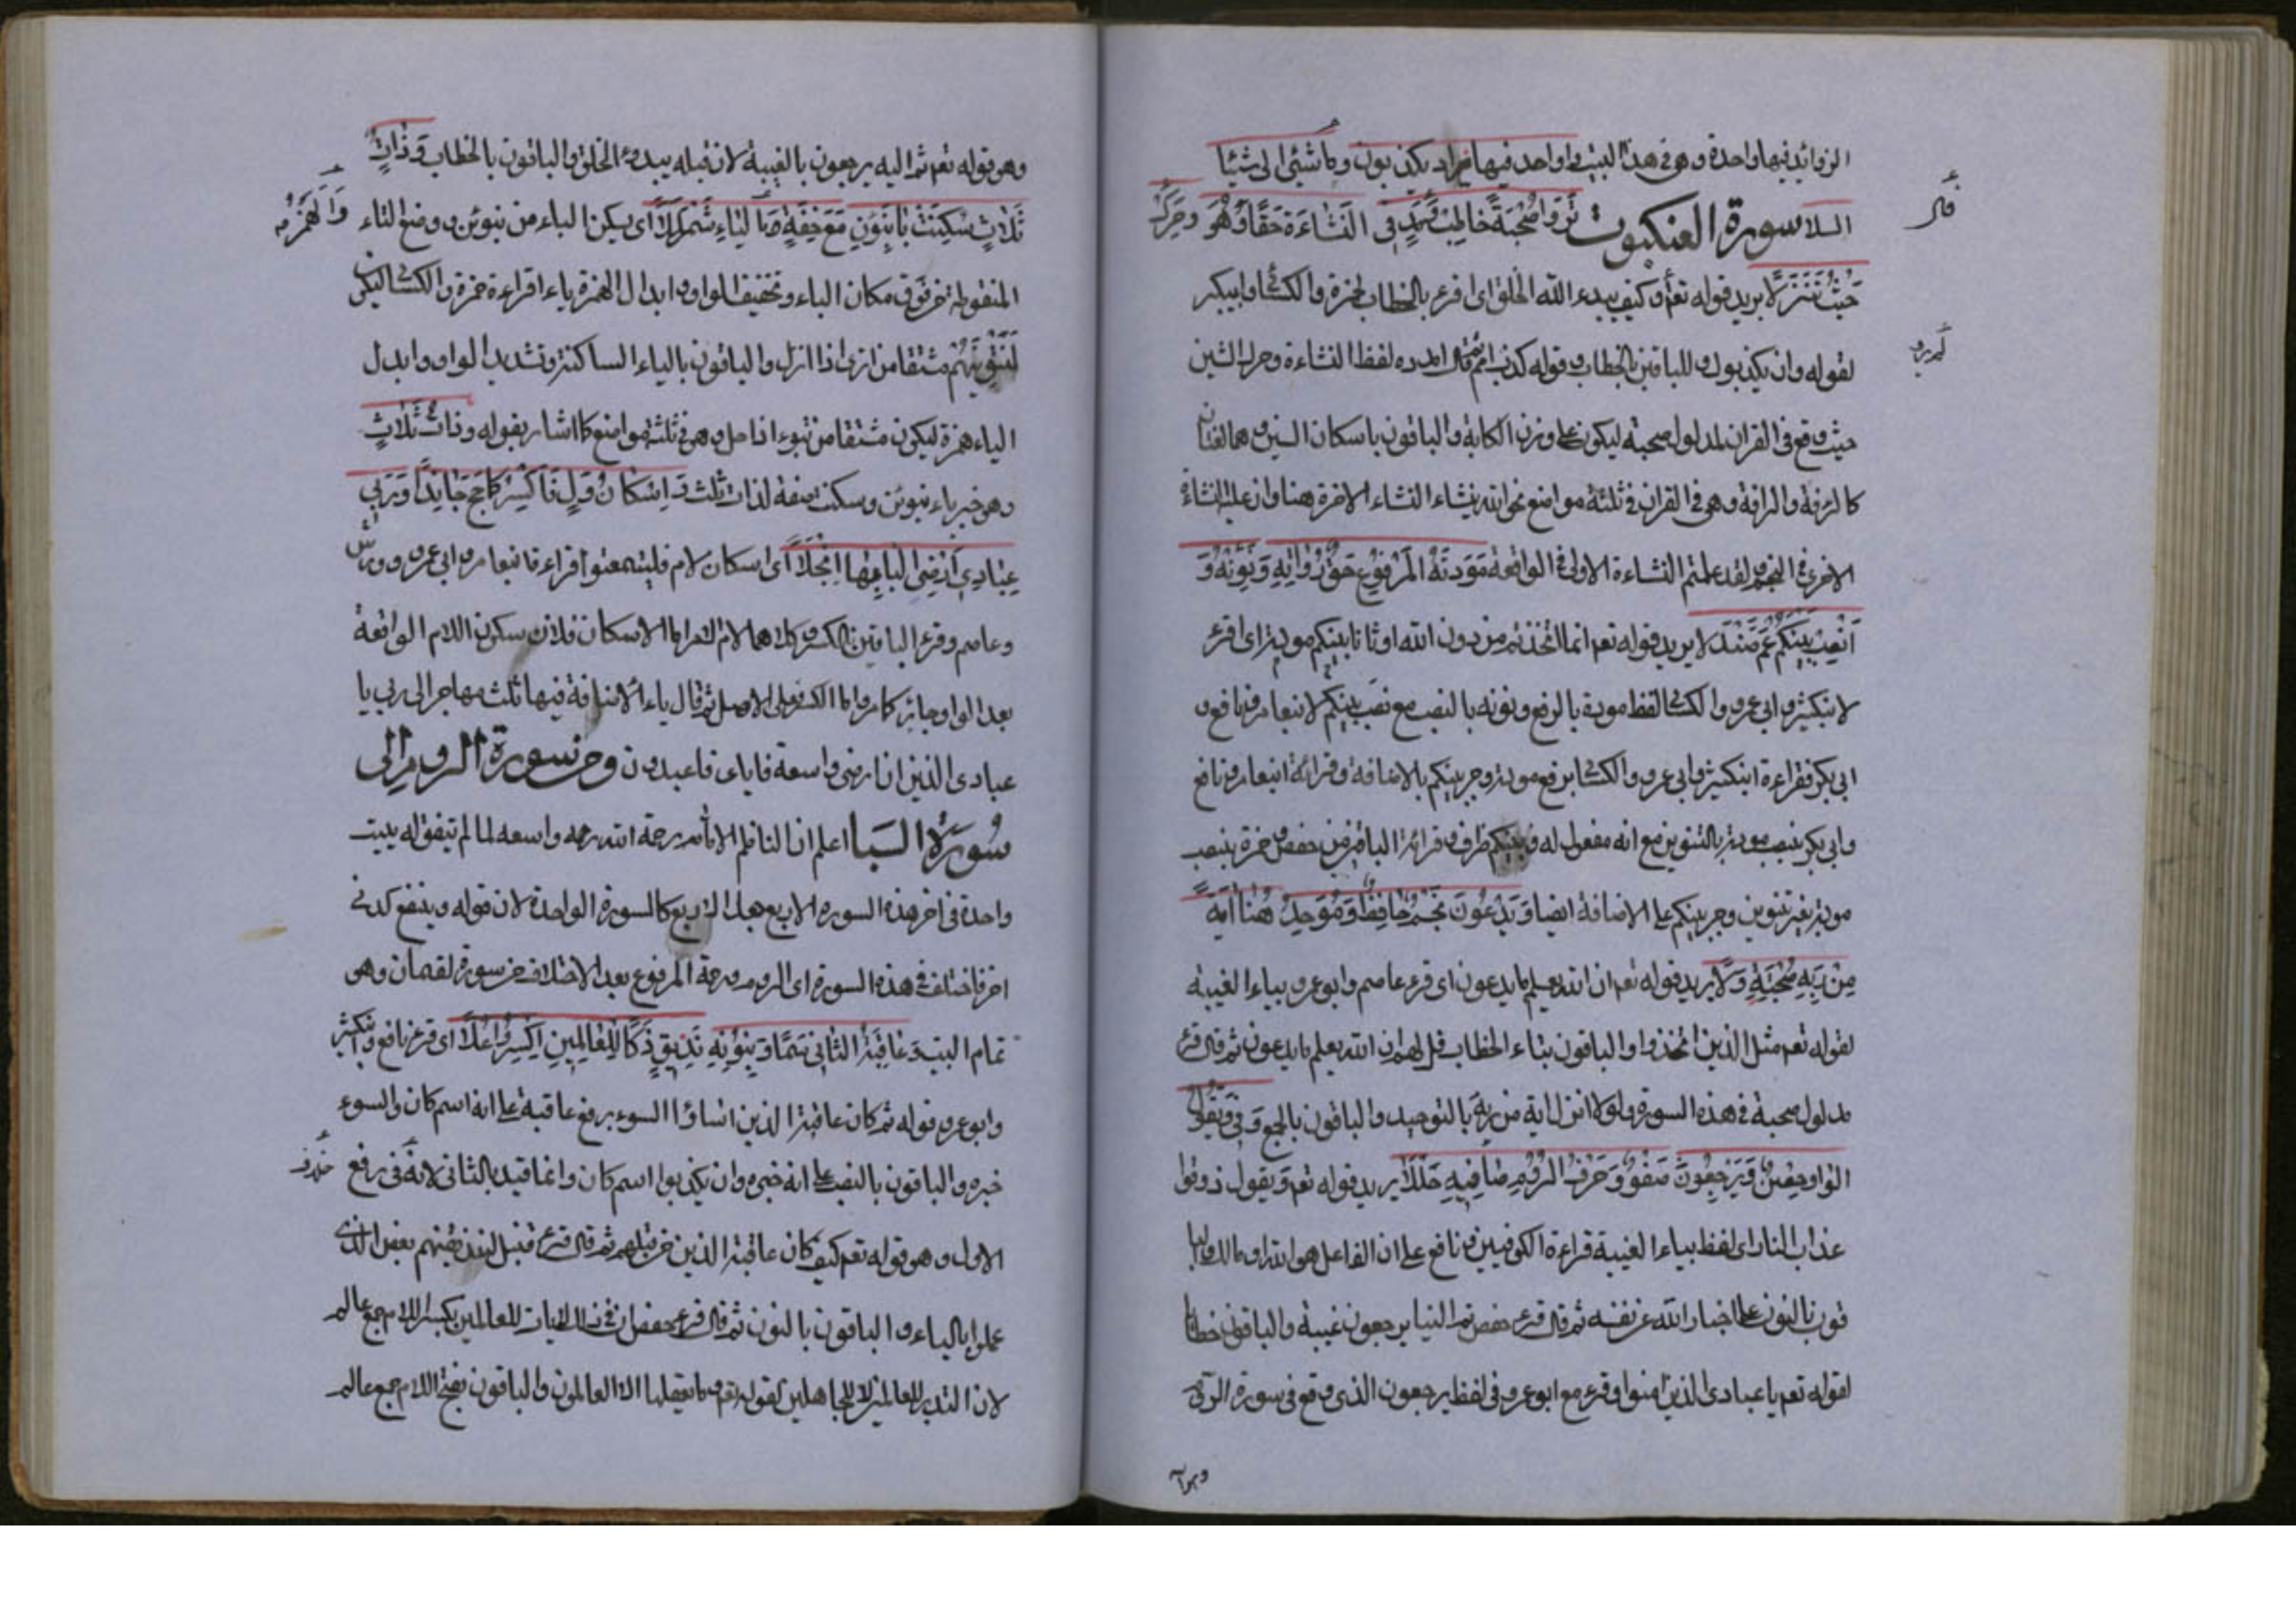 الزوائد فيها واحدة وهى فى هذا البيت واحد فيها مراد يكذبون وما شيئى الى شيئا
السلا سورة العنكبوت تَرَوْا صُحْبَةً خَاطِبْ وَمُدَّ فِى النَّشَاءَةِ حَقًّا وَهُوَ وحَرِّكْ
قال
حَيْثُ تَنَزَّلَا يريد قوله تعم وكيف يبدء الله الخلق اى اقرء بالخطاب لحمزة والكسائى وابيبكر
لقوله وان تكذبوك وللباقين بالخطاب وقوله كذب امم ثم قال امدده لفظ النشاءة وحرك الشين
حيث وقع فى القران لمدلول صحبة ليكون على وزن الكابة والباقون باسكان السين وهما لغتان
كالرفة والرافة وهى فى القران فى ثلثة مواضع نحو الله ينشاء النشاء الاخرة هنا وان عليه النشاة
الاخرى فى النجم ولقد علمتم النشاءة الاولى فى الواقعة مَوَدَّتُهُ الْمَرْفُوعُ حَقُّ رُوَاتِهِ وَنَوِّنْهُ وَ
انْصِبْ بَيْنَكُمْ عَمَّ صَنْدَلَا يريد قوله تعم انما اتخذتم من دون الله اوثانا بينكم مودة اى اقرء
لابنكثير وابى عمرو والكسائى لفظ مودة بالرفع ونونه بالنصب مع نصب بينكم لابنعامر ونافع و
ابى بكر فقراءة ابنكثير وابى عمرو والكسائى برفع مودة وجر بينكم بالاضافة وقرائة ابنعامر ونافع
وابى بكر بنصب مودة بالتنوين مع انه مفعول له وبينكم ظرف وقرائة الباقين حفص حمزة بنصب
مودة بغير تنوين وجر بينكم على الاضافة ايضا وَيَدْعُونَ نَجْمٌ حَافِظٌ وَمُوَحِّدٌ هُنَا آيَةٌ
مِنْ رَبِّهِ صُحْبَةٌ وَلَا يريد قوله تعم ان الله يعلم ما يدعون اى قرء عاصم وابو عمرو بياء الغيبه
لقوله تعم مثل الذين اتخذوا والباقون بتاء الخطاب قل لهم ان الله يعلم ما يدعون ثم قال قرء
مدلول صحبة فى هذه السورة ولولا انزل اية من ربه بالتوحيد والباقون بالجمع وَفِى وَنَقُولُ
الْيَاءُ حِصْنٌ وَيَرْجِعُونَ صَفْوٌ وَحَرْفُ الرُّومِ صَافِيهِ حُلِّلَا يريد قوله تعم ويقول ذوقوا
عذاب النار اى لفظ بياء الغيبة قراءة الكوفيين ونافع على ان الفاعل هو الله او مالك والبا
قون بالنون على اخبار الله عن نفسه ثم قال قرء حفص ثم الينا يرجعون غيبة والباقون خطابا
لقوله تعم يا عبادى الذين امنوا وقرء مع ابو عمرو فى لفظ يرجعون الذى وقع فى سورة الروم
وهو قوله تعم ثم اليه يرجعون بالغيبة لان قبله يبدؤ الخلق والباقون بالخطاب وَذَاتُ
ثَلَاثٍ سُكِّنَتْ بَا نُبَوِّئَنْ مَعَ خِفِّهِ وَالْهَمْزُ بِالْيَاءِ شَمْلَلَا اى يسكن الباء من نبوئن ووضع الثاء
المنقوطة من فوق مكان الباء وتخفيف الواو وابدال الهمزة ياء اقراءة حمزة والكسائى ليكن
لَنُثْوِيَنَّهُمْ مشتقا من اثوى اذا انزل والباقون بالياء الساكنة وتشديد الواو وابدل
الياء همزة ليكون مشتقا من تبوء اذا حل وهو فى ثلثة مواضع كما اشار بقوله وذات ثلاث
وهو خبر باء نبوئن وسكنت صفة لذات ثلث وَاِسْكَانُ وَلْ فَاكْسِرْ كَمَا حَجَّ جَا نَدًا وَرَبِّى
عِبَادِى اَرْضِى الْيَا بِهَا انْجَلَا اى اسكان لام فليتمتعوا قراءة ابنعامر وابى عمرو وورش
وعاصم وقرء الباقين بالكسر كلاهما لام الامر اما الاسكان فلان سكون اللام الواقعة
بعد الواو جايز كما مر واما الكسر فعلى الاصل ثم قال ياء الاضافة فيها ثلث مهاجر الى ربى يا
عبادى الذين ان ارضى واسعة فاياى فاعبدون ومن سورة الروم الى
سُورَةِ السَبَا اعلم ان الناظم الامام رحمة الله رحمه واسعه لما لم يتفق له بيت
واحدة فى اخر هذه السوره الاربع جعل الاربع كالسورة الواحدة لان قوله وينفع كوفى
اخر ما اختلف فى هذه السورة اى الروم ورحمة المرفوع بعد الاختلاف من سورة لقمان وهو
تمام البيت وَعَاقِبَةُ الثَّانِى سَمَا وَبِنُونِهِ نُذِيقُ زَكَا لِلْعَالِمِينَ اكْسِرُوا عُلًا اى قرء نافع وابنكثير
وابو عمرو قوله ثم كان عاقبة الذين اساؤا السوء برفع عاقبة على انه اسم كان والسوء
خبره والباقون بالنصب على انه خبره وان يكذبوا اسم كان وانما قيد بالثانى لانه فى رفع
الاول وهو قوله تعم كيف كان عاقبة الذين من قبلهم ثم قال قرء قنبل لنذيقنهم بعض الذى
عملوا بالياء والباقون بالنون ثم قال قرء حفص ان فى ذلك لايات للعالمين بكسر اللام جمع عالم
لان التدبر للعالمين لا للجاهلين لقوله تعم وما يعقلها الا العالمون والباقون بفتح اللام جمع عالم